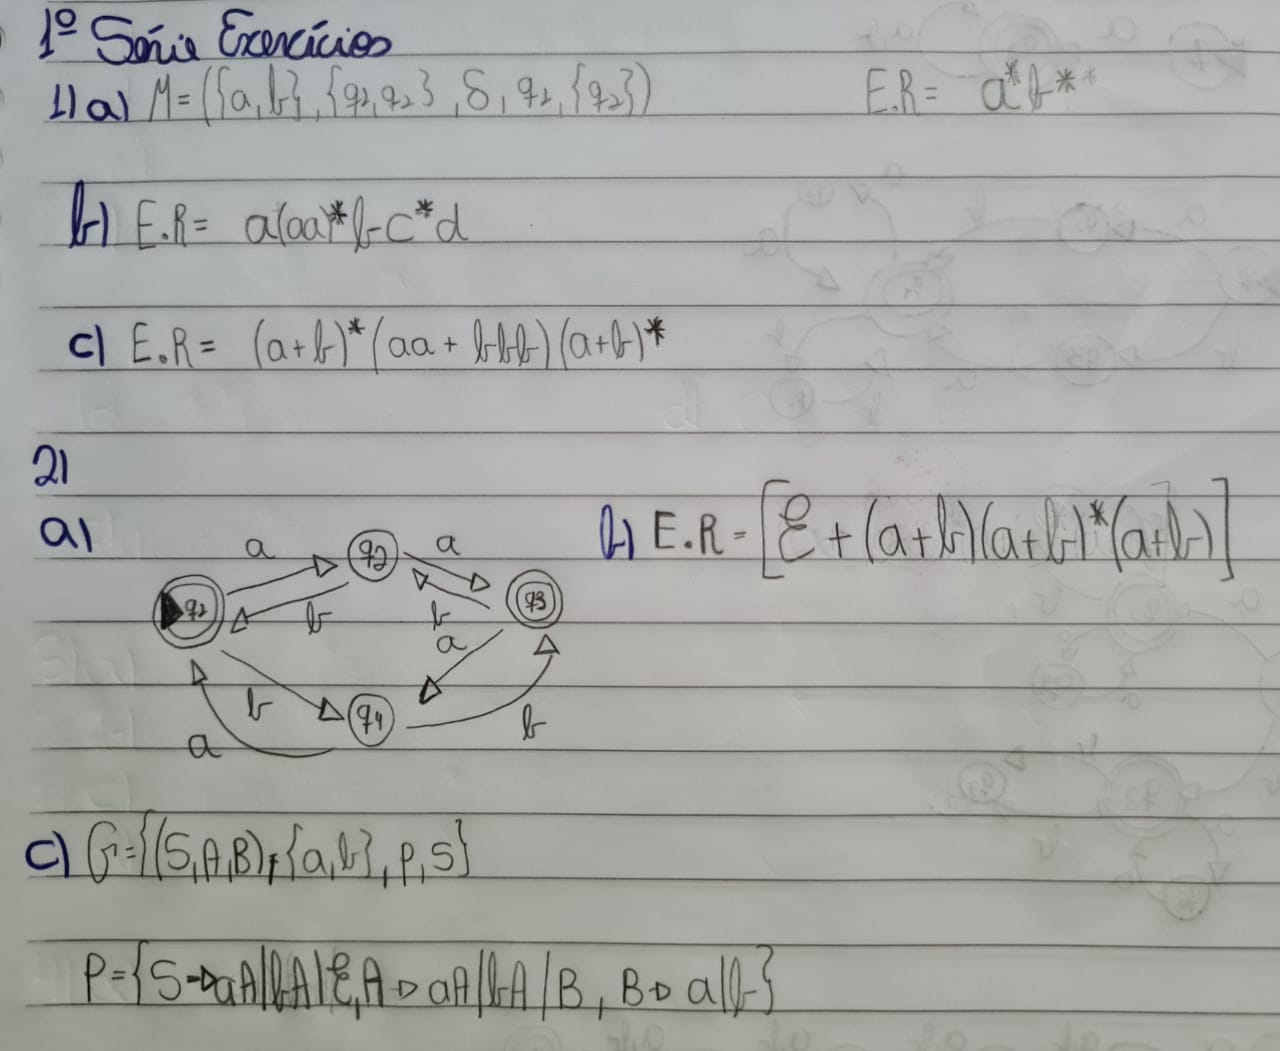 1º Série Exercícios
1) a) M = ({a, b}, {q1, q2}, δ, q1, {q2}) E.R = a*b**
b) E.R = a(aa)*bc*d
c) E.R = (a+b)*(aa + bbb)(a+b)*
2)
a) b) E.R = [ε + (a+b)(a+b)*(a+b)]
a a
q2
q1 q3
b b
a
b q4
a b
c) G={(S,A,B),{a,b},P,S}
P={S→aA|bA|ε, A→aA|bA|B, B→a|b}